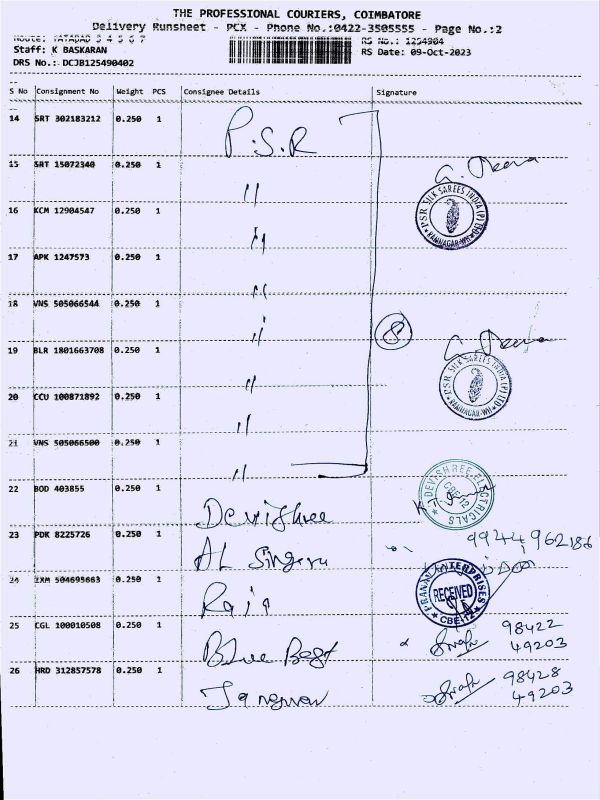 THE PROFESSIONAL COURIERS, COIMBATORE
Delivery Runsheet - PCX - Phone No.:0422-3505555 - Page No.:2
Route: TATABAD 3 4 5 6 7
RS No.: 1254904
Staff: K BASKARAN
RS Date: 09-Oct-2023
DRS No.: DCJB125490402
S No Consignment No Weight PCS Consignee Details Signature
14 SRT 302183212 0.250 1 P.S.R
15 SRT 15072340 0.250 1 "
PSR SILK SAREES INDIA (P) LTD
RAMNAGAR-WH
16 KCM 12904547 0.250 1 "
17 APK 1247573 0.250 1 "
18 VNS 505066544 0.250 1 "
8
19 BLR 1801663708 0.250 1 "
PSR SILK SAREES INDIA (P) LTD
RAMNAGAR-WH
20 CCU 100871892 0.250 1 "
21 VNS 505066500 0.250 1 "
22 BOD 403855 0.250 1 Devishree
DEVISHREE ELECTRICALS
CBE-12
23 PDK 8225726 0.250 1 AL
9944962186
24 IXM 504695663 0.250 1 Raja
PRANAV ENTERPRISES
RECEIVED
CBE-12
25 CGL 100010508 0.250 1 Blue Best
98422
49203
26 HRD 312857578 0.250 1
98428
49203